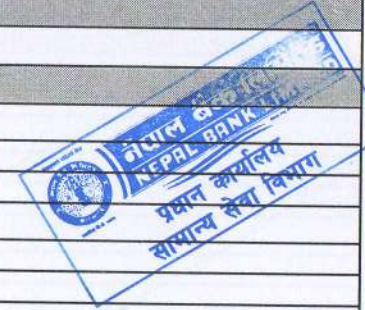 नेपाल बैंक
NEPAL BANK LIM
प्रधान कार्यालय
सामान्य सेवा विभाग